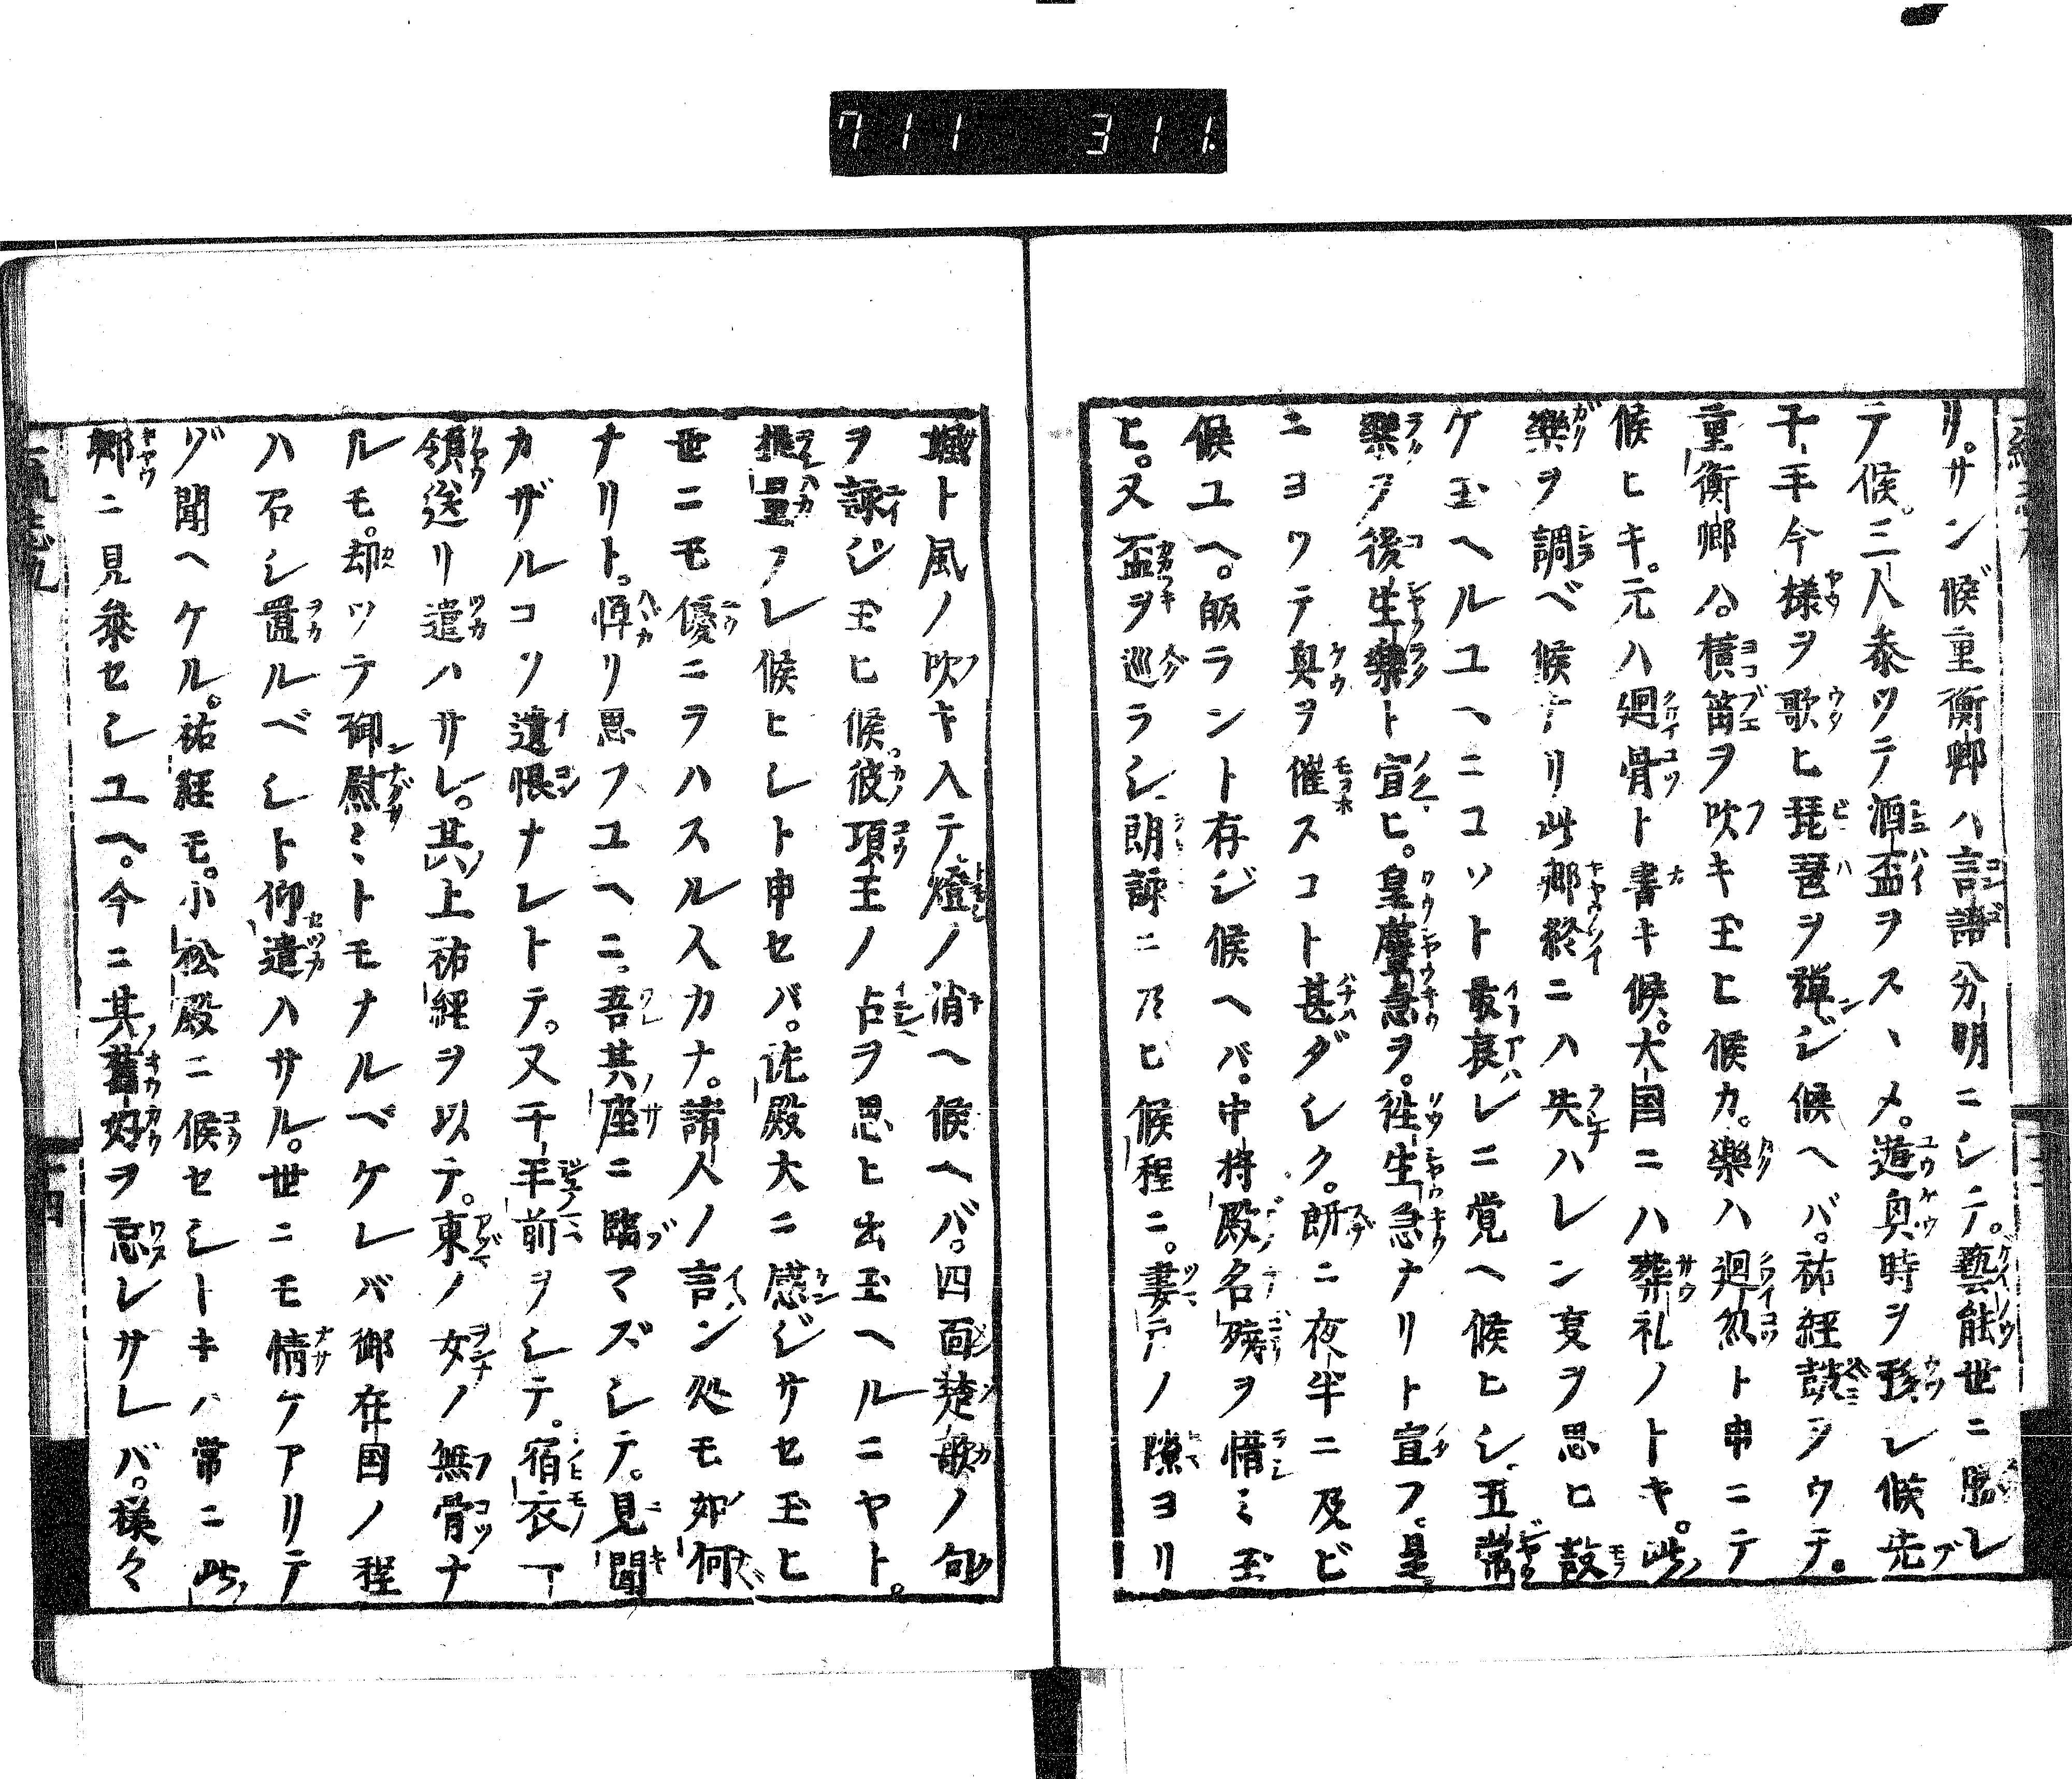 711 311
リ。サン候重衡卿ハ言語分明ニシテ。藝能世ニ勝レ
テ候。三人泰ツテ酒盃ヲスヽメ。遊興時ヲ移レ候先
千手今様ヲ歌ヒ琵琶ヲ弾ジ候ヘバ。祐経鼓ヲウチ。
重衡卿ハ。横笛ヲ吹キ玉ヒ候カ。樂ハ廻忽ト申ニテ
候ヒキ。元ハ廻骨ト書キ候。大国ニハ葬礼ノトキ。此
樂ヲ調ベ候ナリ此卿終ニハ失ハレン㕝ヲ思ヒ設
ケ玉ヘルユヘニコソト最哀レニ覚ヘ候ヒシ。五常
樂ヲ後生樂ト宣ヒ。皇麞急ヲ。往生急ナリト宣フ。是
ニヨツテ興ヲ催スコト甚ダシク。既ニ夜半ニ及ビ
候ユヘ。皈ラント存ジ候ヘバ。中将殿名殘ヲ惜ミ玉
ヒ。又盃ヲ巡ラシ、朗詠ニ及ヒ候程ニ。妻戸ノ隙ヨリ
颯ト風ノ吹キ入テ、燈ノ消ヘ候ヘバ。四面楚歌ノ句
ヲ詠ジ玉ヒ候。彼項王ノ古ヲ思ヒ出玉ヘルニヤト。
推量ラレ候ヒシト申セバ。佐殿大ニ感ジサセ玉ヒ
世ニモ優ニヲハスル人カナ。諸人ノ言ン処モ如何
ナリト。憚リ思フユヘニ、吾其座ニ臨マズシテ。見聞
カザルコソ遺恨ナレトテ。又千手前ヲシテ。宿衣一
領送リ遣ハサレ。其上祐経ヲ以テ。東ノ女ノ無骨ナ
ルモ。却ツテ御慰ミトモナルベケレバ御在国ノ程
ハ召シ置ルベシト仰遣ハサル。世ニモ情ケアリテ
ゾ聞ヘケル。祐経モ。小松殿ニ候セシトキハ常ニ此
卿ニ見參セシユヘ。今ニ其舊好ヲ忘レサレバ。様々